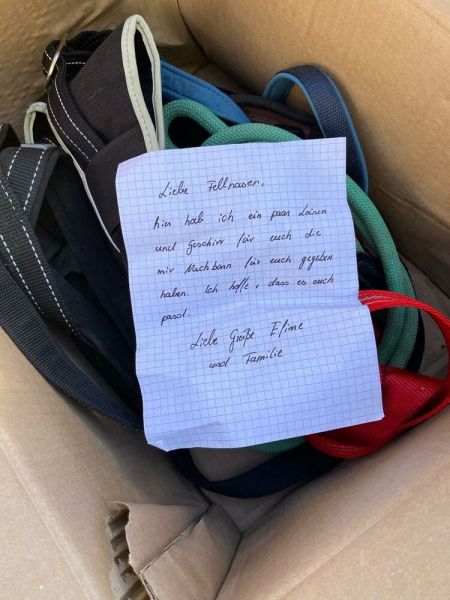 Liebe Fellnasen,
hier hab ich ein paar Leinen
und Geschirr für euch die
mir Nachbarn für euch gegeben
haben. Ich hoffe, dass es euch
passt.
Liebe Grüße
und Familie